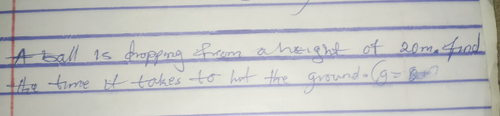 A ball is dropping from a height of 20m. find
the time it takes to hit the ground. (g =